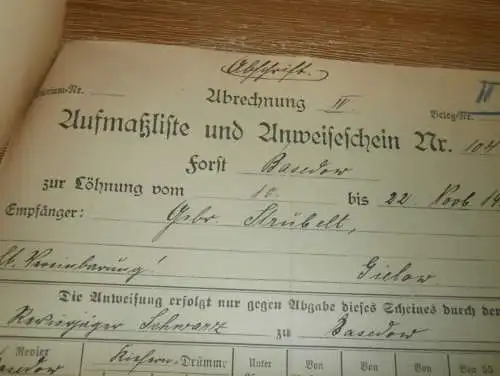 Abschrift.
Abrechnung IV
Beleg-Nr. II
Aufmaßliste und Anweiseschein Nr. 104
Forst Basedow
zur Löhnung vom 10. bis 22 Novb 19
Empfänger: Gebr. Strübelt,
Lt. Vereinbarung! Gielow
Die Anweisung erfolgt nur gegen Abgabe dieses Scheines durch den
Revierjäger Schwarz zu Basedow
Revier Kiefern-Drümme Unter Von Von Von Von 55